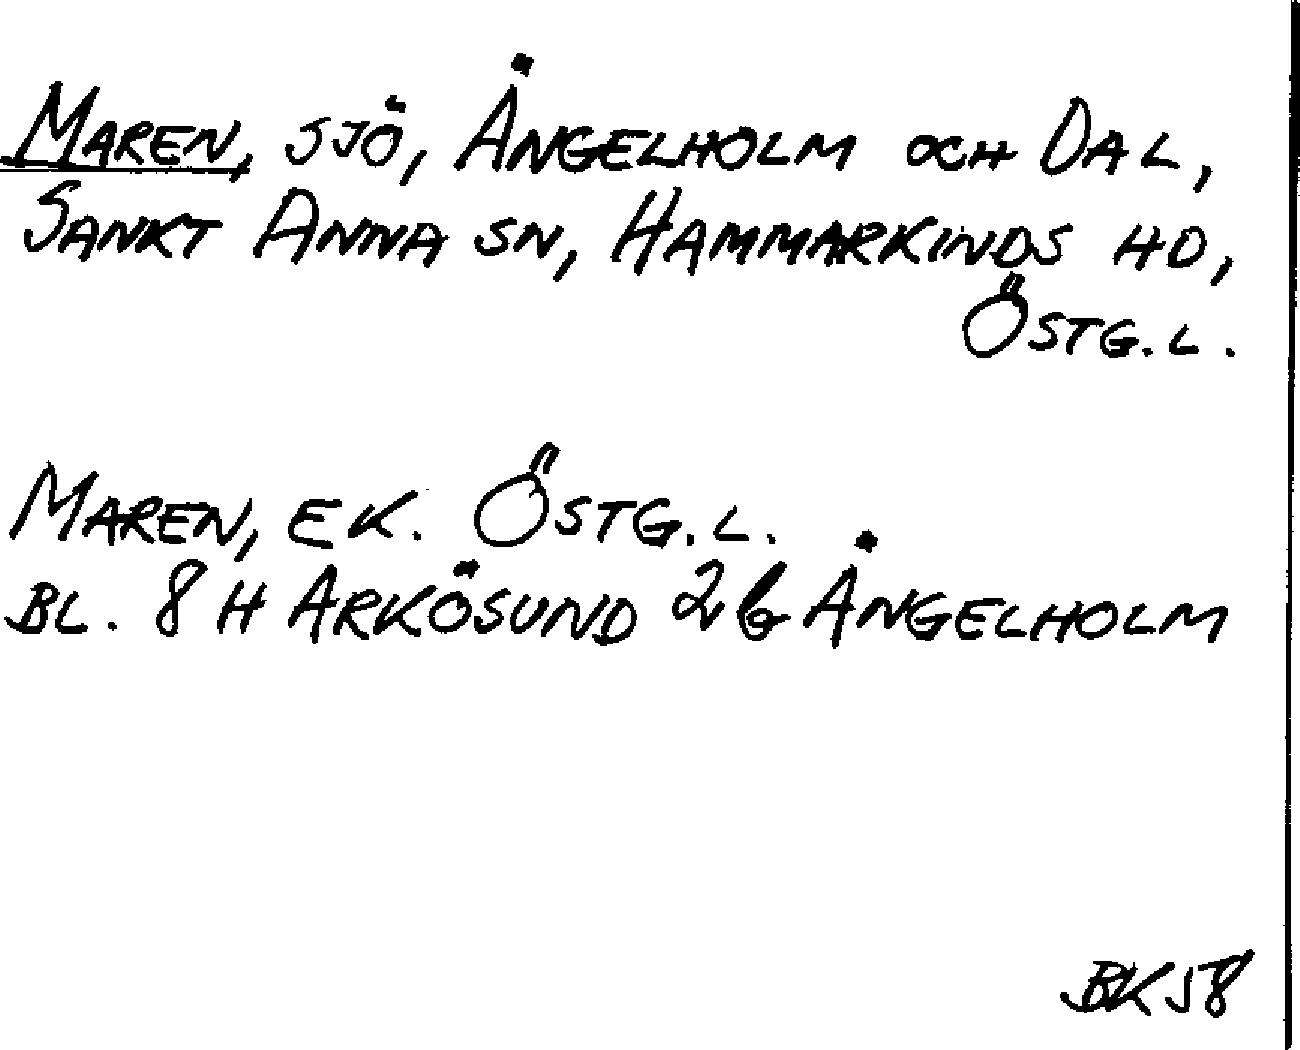 MAREN, SJÖ, ÄNGELHOLM OCH DAL,
SANKT ANNA SN, HAMMARKINDS HD,
ÖSTG.L.
MAREN, EK. ÖSTG.L.
BL. 8 H ARKÖSUND 2b ÄNGELHOLM
BK 58